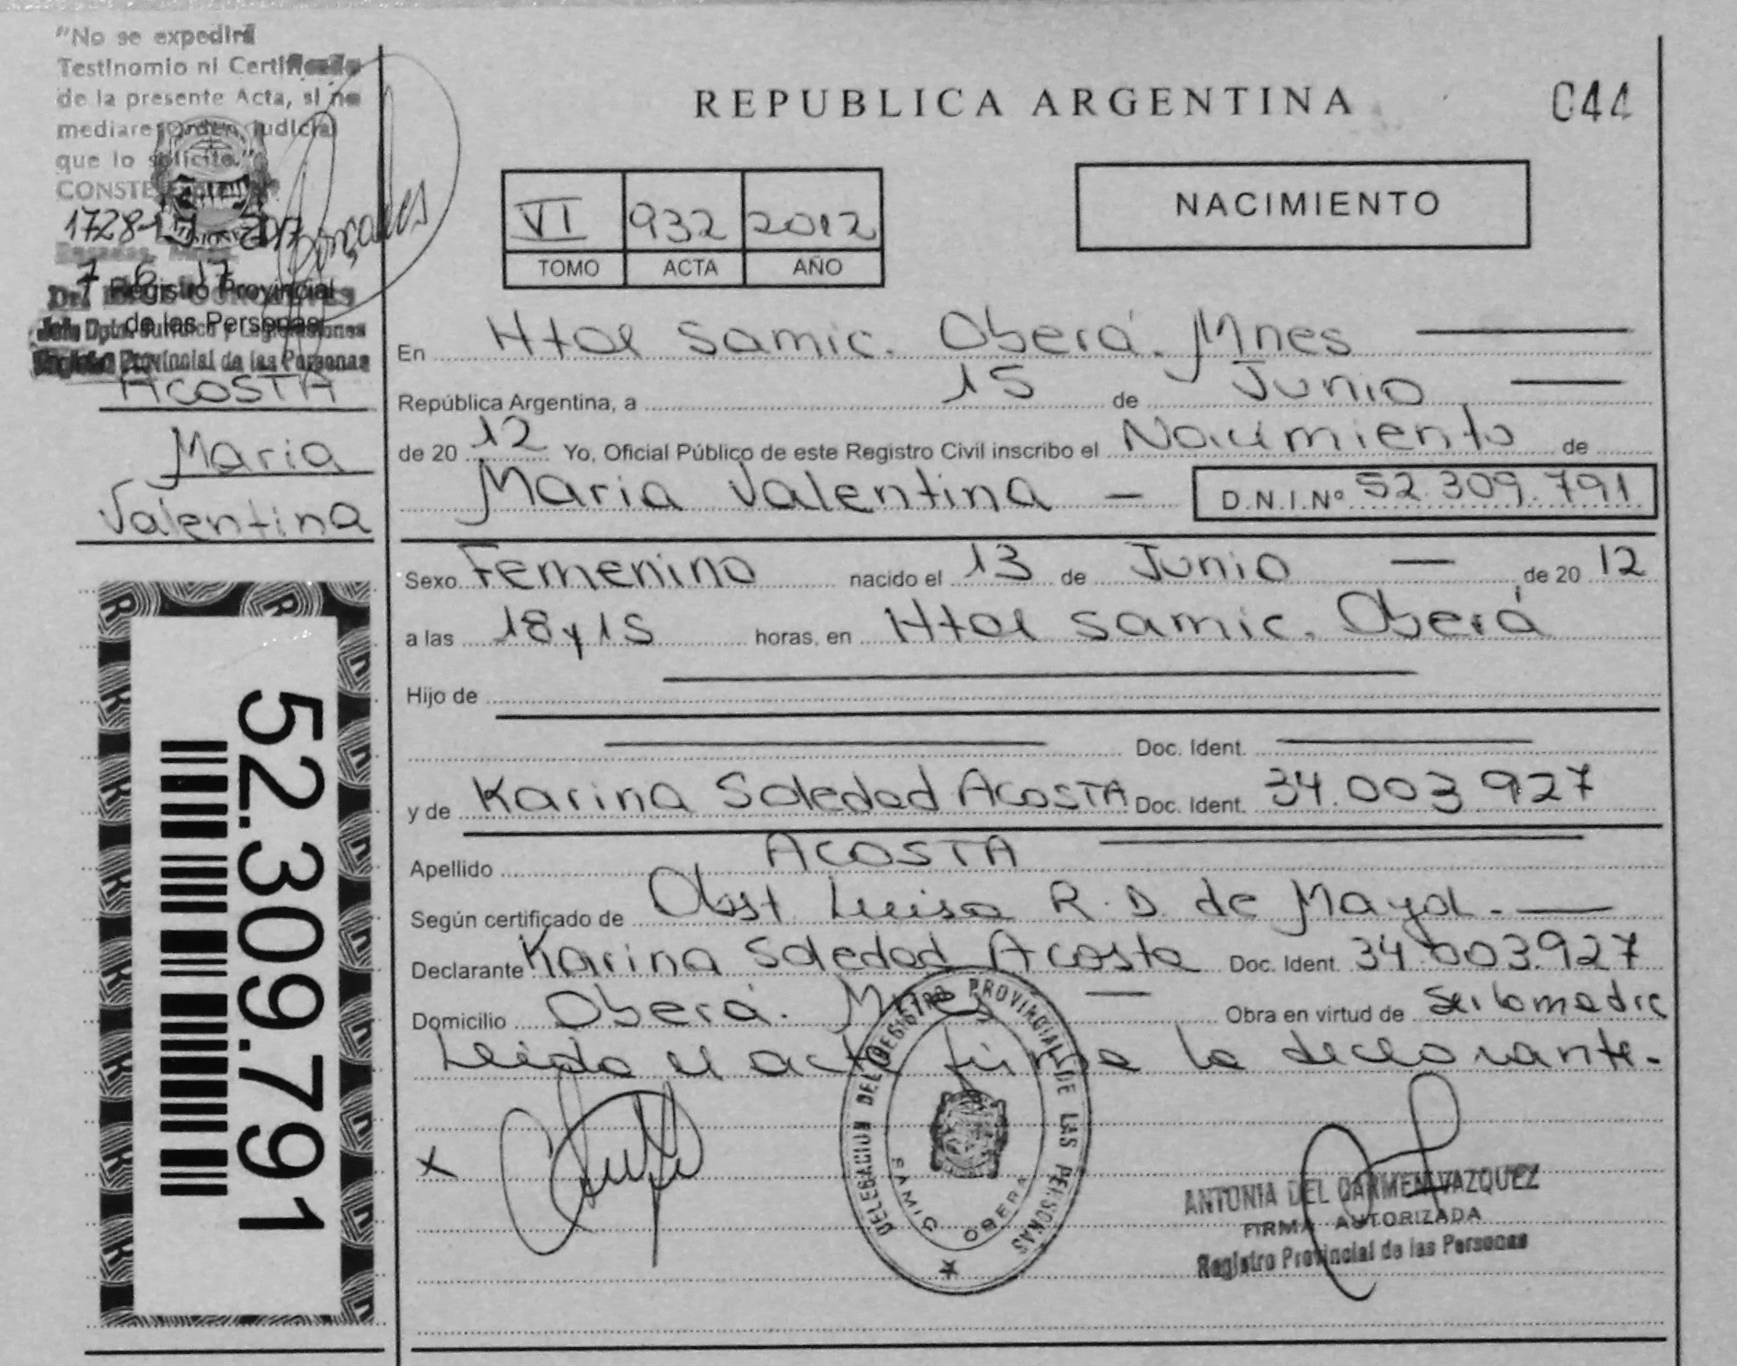 "No se expedirá
Testinomio ni Certificado
de la presente Acta, si no
mediare Orden Judicial
que lo solicite."
CONSTE
1728-
7 6 17
Registro Provincial
de las Personas
Provincial de las Personas
ACOSTA
Maria
Valentina
52.309.791
REPUBLICA ARGENTINA
044
VI 932 2012
TOMO ACTA AÑO
NACIMIENTO
En Htal Samic. Oberá. Mnes
República Argentina, a 15 de Junio
de 20 12 Yo, Oficial Público de este Registro Civil inscribo el Nacimiento de
Maria Valentina — D.N.I.Nº 52.309.791
Sexo Femenino nacido el 13 de Junio — de 20 12
a las 18 y 15 horas, en Htal Samic. Oberá
Hijo de
Doc. Ident.
y de Karina Soledad ACOSTA Doc. Ident. 34.003.927
Apellido ACOSTA
Según certificado de Obst Luisa R. D. de Mayol.
Declarante Karina Soledad Acosta Doc. Ident 34.003.927
Domicilio Oberá. Mnes — Obra en virtud de Ser la madre
Leida el acta firma la declarante.
x
DELEGACION DEL REGISTRO PROVINCIAL DE LAS PERSONAS
SAMIC OBERA
ANTONIA DEL CARMEN VAZQUEZ
FIRMA AUTORIZADA
Registro Provincial de las Personas